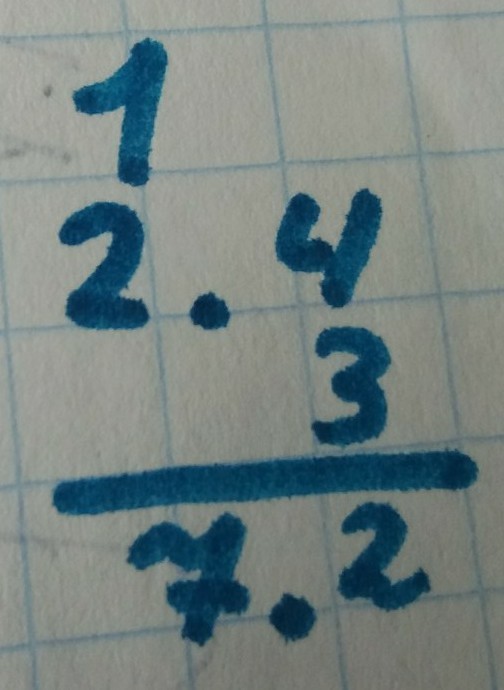 1
2.4
3
7.2